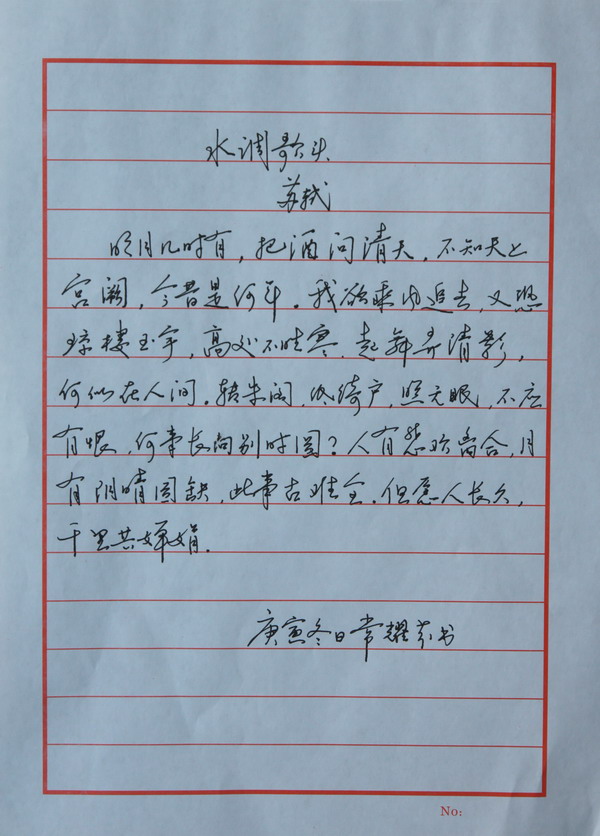 水调歌头
苏轼
明月几时有，把酒问清天，不知天上
宫阙，今昔是何年。我欲乘内追去，又恐
琼楼玉宇，高处不胜寒，起舞弄清影，
何似在人间。转朱阁，低绮户，照无眠，不应
有恨，何事长向别时圆？人有悲欢离合，月
有阴晴圆缺，此事古难全，但愿人长久，
千里共婵娟。
庚寅冬日常耀 书
No: